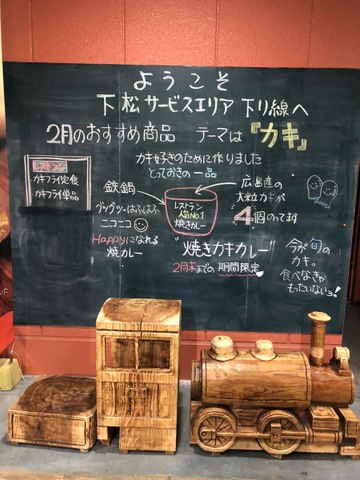 ようこそ
下松サービスエリア 下り線へ
2月のおすすめ商品 テーマは『カキ』
カキ好きのために作りました
とっておきの一品
レストラン
カキフライ定食
カキフライ単品
鉄鍋
グツグツ・はふはふ
ニコニコ
Happyになれる
焼カレー
レストラン
人気No.1
焼きカレー
広島産の
大粒カキが
4個のってます
"焼きカキカレー"
2月末までの期間限定
今が旬の
カキ。
食べなきゃ
もったいないョ!